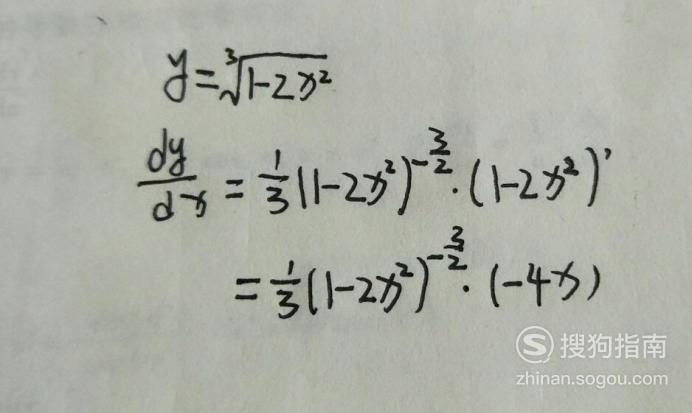 y = ∛(1-2x²)
dy/dx = 1/3 (1-2x²)^(-3/2) · (1-2x²)'
= 1/3 (1-2x²)^(-3/2) · (-4x)
S 搜狗指南
zhinan.sogou.com